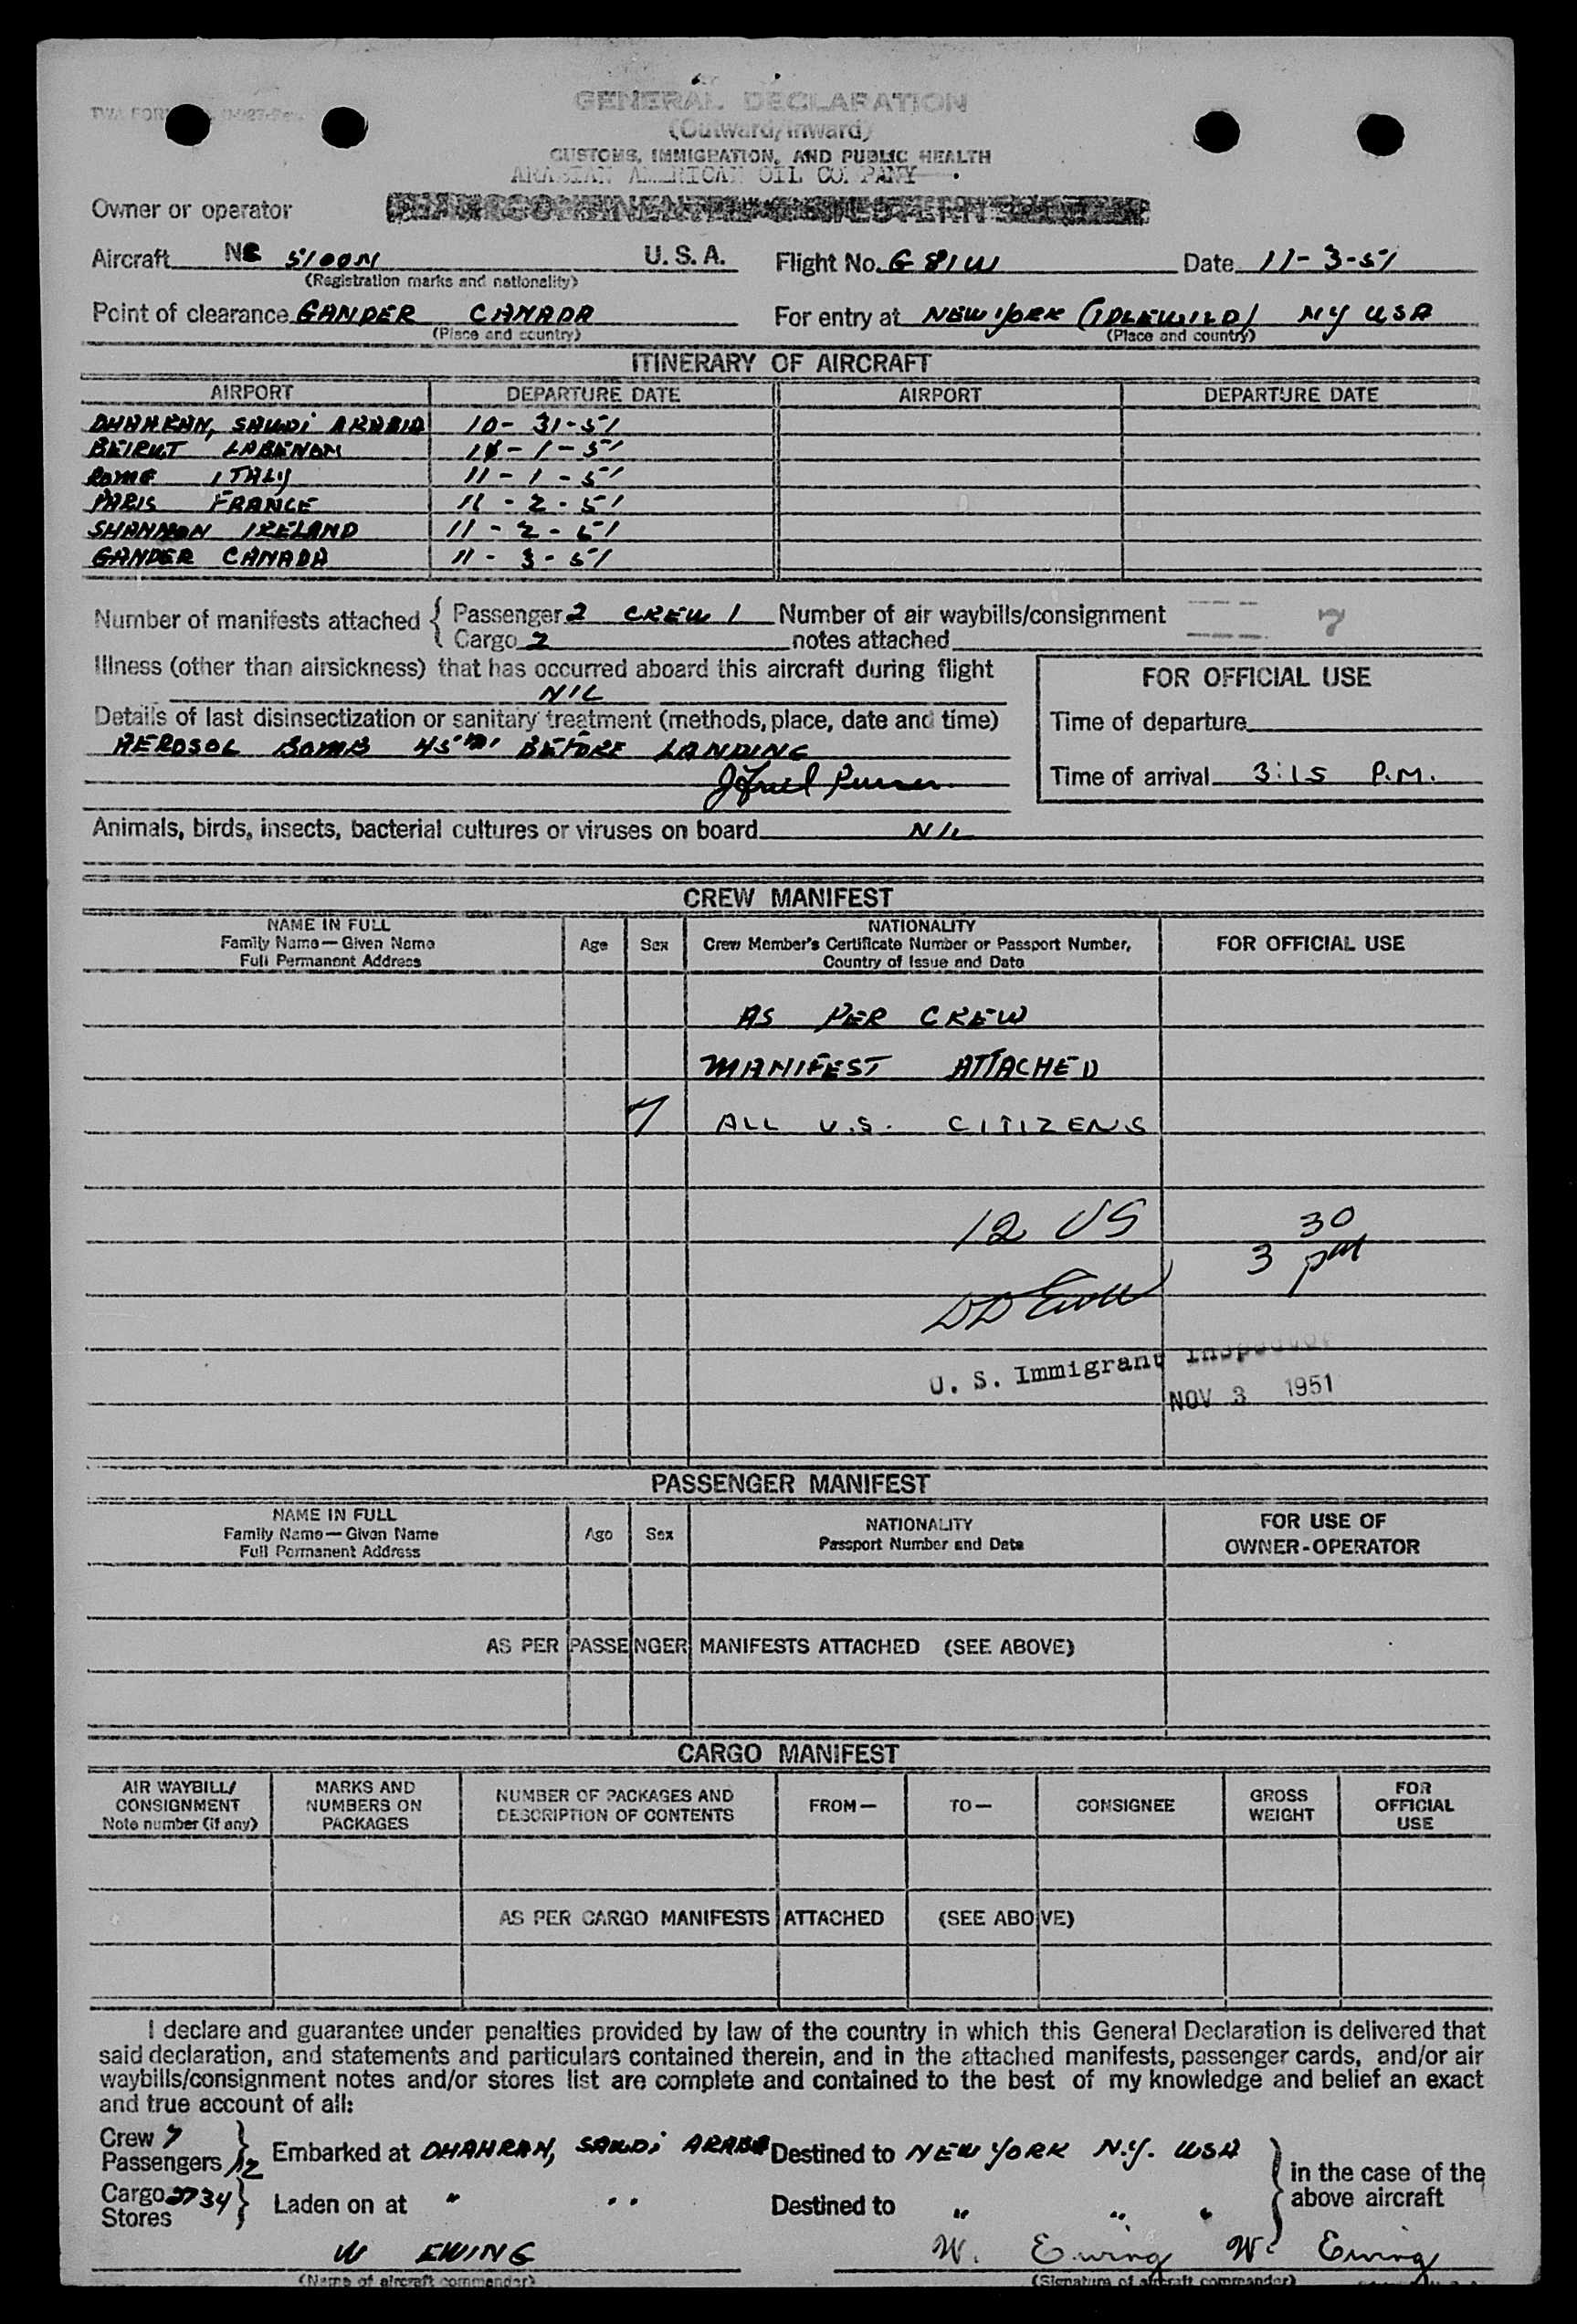 GENERAL DECLARATION
(Outward/Inward)
CUSTOMS, IMMIGRATION, AND PUBLIC HEALTH
ARABIAN AMERICAN OIL COMPANY
Owner or operator
Aircraft 51001 U.S.A. Flight No. G 81W Date 11-3-51
(Registration marks and nationality)
Point of clearance GANDER CANADA For entry at NEW YORK (IDLEWILD) NY USA
(Place and country) (Place and country)
ITINERARY OF AIRCRAFT
AIRPORT DEPARTURE DATE AIRPORT DEPARTURE DATE
DHAHRAN, SAUDI ARABIA 10-31-51
BEIRUT LABENON 11-1-51
ROME ITALY 11-1-51
PARIS FRANCE 11-2-51
SHANNON IRELAND 11-2-51
GANDER CANADA 11-3-51
Number of manifests attached { Passenger 2 CREW 1 Number of air waybills/consignment 7
Cargo 2 notes attached
Illness (other than airsickness) that has occurred aboard this aircraft during flight
NIL
FOR OFFICIAL USE
Details of last disinsectization or sanitary treatment (methods, place, date and time)
Time of departure
AEROSOL BOMB 45 BEFORE LANDING
Time of arrival 3:15 P.M.
Animals, birds, insects, bacterial cultures or viruses on board NIL
CREW MANIFEST
NAME IN FULL
Family Name—Given Name
Full Permanent Address
Age Sex
NATIONALITY
Crew Member's Certificate Number or Passport Number,
Country of Issue and Date
FOR OFFICIAL USE
AS PER CREW
MANIFEST ATTACHED
7 ALL U.S. CITIZENS
12 US 3 30 pm
U. S. Immigrant Inspector
NOV 3 1951
PASSENGER MANIFEST
NAME IN FULL
Family Name—Given Name
Full Permanent Address
Age Sex
NATIONALITY
Passport Number and Date
FOR USE OF
OWNER-OPERATOR
AS PER PASSENGER MANIFESTS ATTACHED (SEE ABOVE)
CARGO MANIFEST
AIR WAYBILL/
CONSIGNMENT
Note number (if any)
MARKS AND
NUMBERS ON
PACKAGES
NUMBER OF PACKAGES AND
DESCRIPTION OF CONTENTS
FROM— TO— CONSIGNEE
GROSS
WEIGHT
FOR
OFFICIAL
USE
AS PER CARGO MANIFESTS ATTACHED (SEE ABOVE)
I declare and guarantee under penalties provided by law of the country in which this General Declaration is delivered that
said declaration, and statements and particulars contained therein, and in the attached manifests, passenger cards, and/or air
waybills/consignment notes and/or stores list are complete and contained to the best of my knowledge and belief an exact
and true account of all:
Crew 7
Passengers 12 } Embarked at DHAHRAN, SAUDI ARABIA Destined to NEW YORK N.Y. USA
in the case of the
above aircraft
Cargo 2734
Stores } Laden on at " " Destined to " " "
W EWING W. Ewing W. Ewing
(Name of aircraft commander) (Signature of aircraft commander)